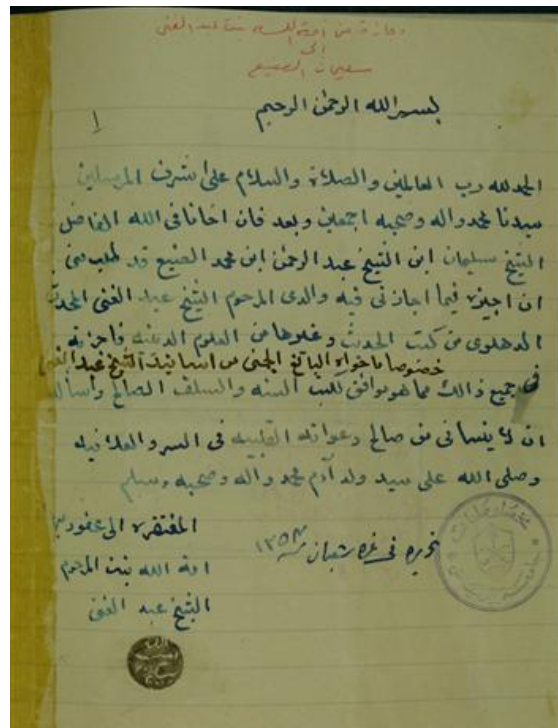 إجازة من أمة الله بنت عبد الغني
إلى
سليمان الصنيع
بسم الله الرحمن الرحيم
الحمد لله رب العالمين والصلاة والسلام على اشرف المرسلين
سيدنا محمد واله وصحبه اجمعين وبعد فان اخانا في الله الفاضل
الشيخ سليمان ابن الشيخ عبد الرحمن ابن محمد الصنيع قد طلب مني
ان اجيزه فيما اجازني فيه والدي المرحوم الشيخ عبد الغني المحدث
الدهلوي من كتب الحديث وغيرها من العلوم الدينيه فأجزته
خصوصا ما حواه اليانع الجني من اسانيد الشيخ عبد الغني
في جميع ذالك مما هو موافق للسنه والسلف الصالح واساله
ان لا ينساني من صالح دعواته القلبيه في السر والعلانيه
وصلى الله على سيد ولد آدم محمد واله وصحبه وسلم
المفتقرة الى عفو ربها
تحريره في غرة شعبان سنه ١٣٥٧
امة الله بنت المرحوم
الشيخ عبد الغني